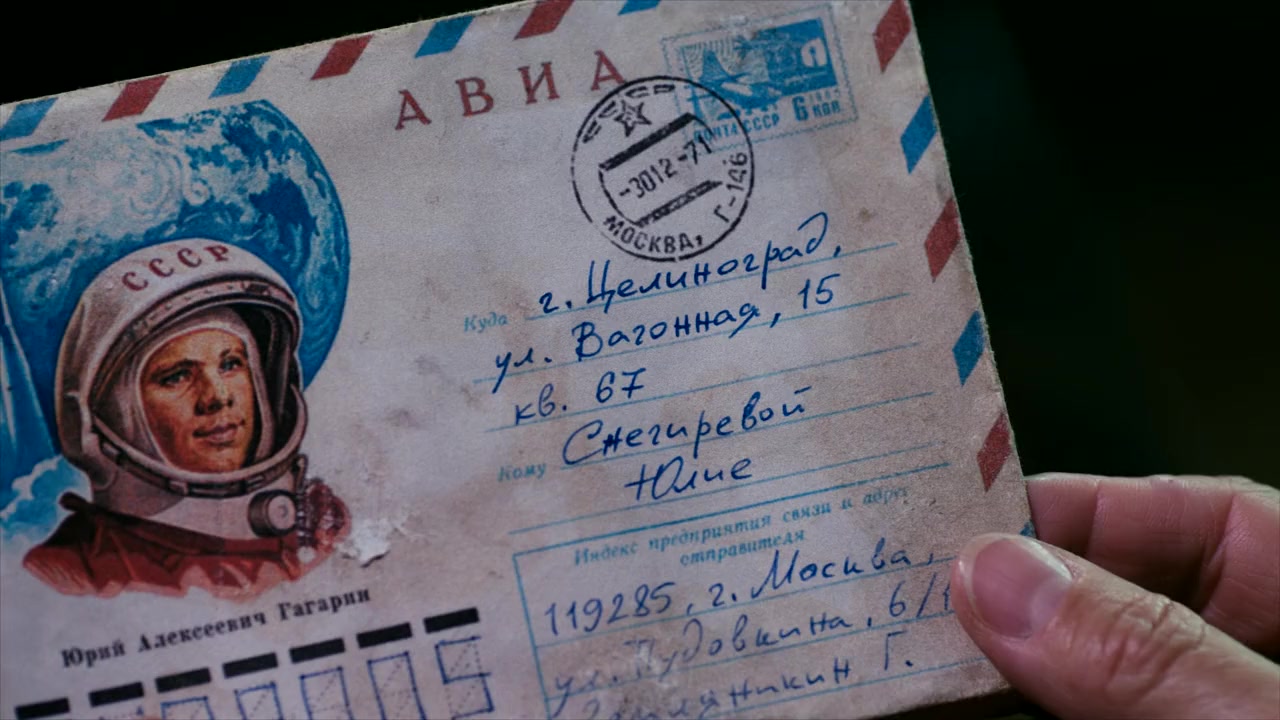 АВИА
ПОЧТА СССР 6 КОП
-3012-71
МОСКВА, Г-146
СССР
Куда г. Целиноград,
ул. Вагонная, 15
кв. 67
Кому Снегиревой
Юлие
Индекс предприятия связи и адрес
отправителя
119285, г. Москва,
ул. Пудовкина, 6/
Г.
Юрий Алексеевич Гагарин